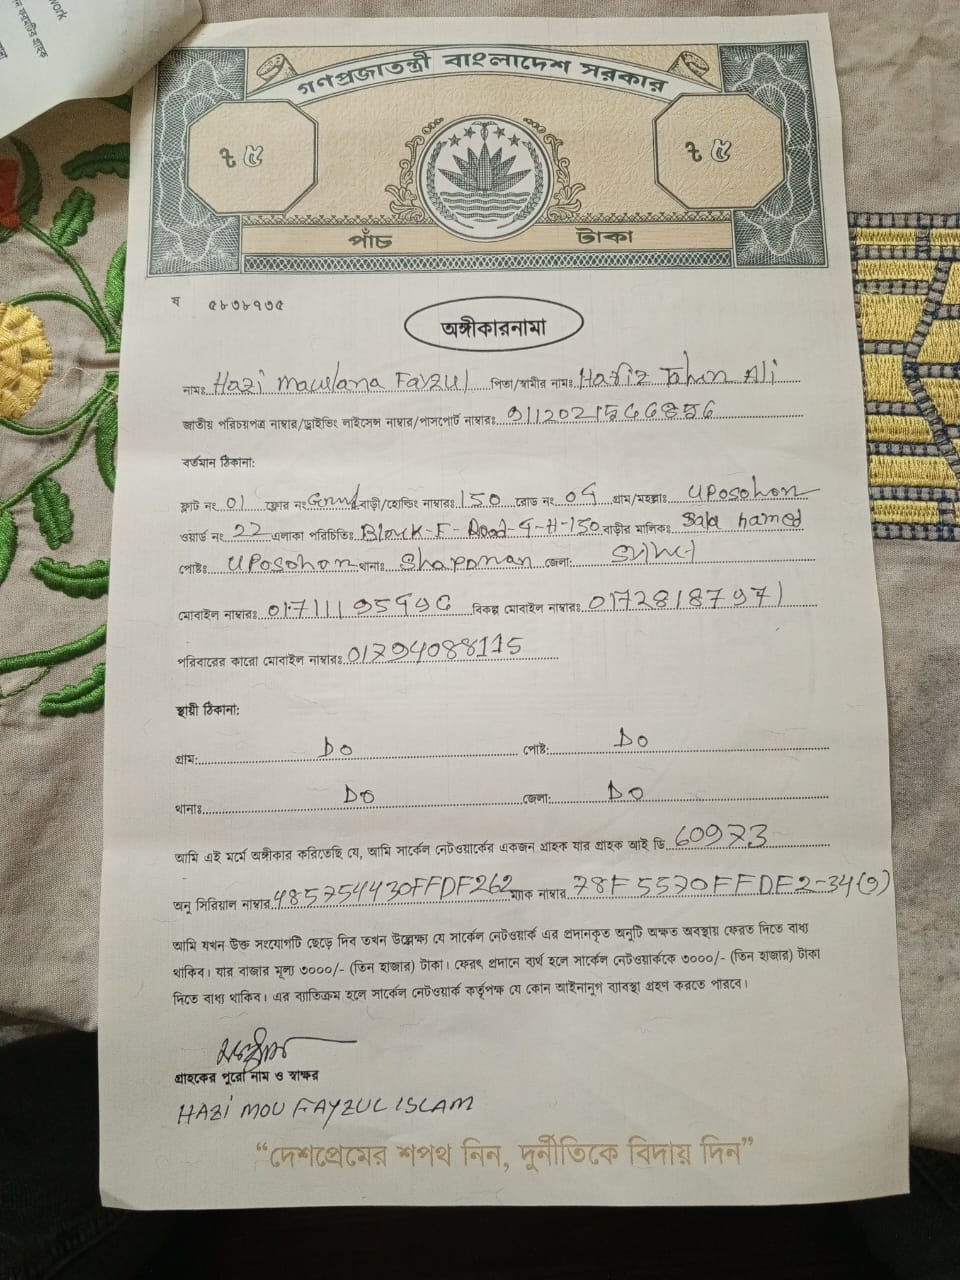 work
গণপ্রজাতন্ত্রী বাংলাদেশ সরকার
৳ ৫ ৳ ৫
পাঁচ টাকা
ষ ৫৮৩৮৭৩৫
অঙ্গীকারনামা
নামঃ Hazi maulana Fayzul পিতা/স্বামীর নামঃ Hafiz Ali
জাতীয় পরিচয়পত্র নাম্বার/ড্রাইভিং লাইসেন্স নাম্বার/পাসপোর্ট নাম্বারঃ
বর্তমান ঠিকানা:
ফ্লাট নং 01 ফ্লোর নং বাড়ী/হোল্ডিং নাম্বারঃ 150 রোড নং গ্রাম/মহল্লাঃ uposohon
ওয়ার্ড নং 22 এলাকা পরিচিতিঃ Block-F- Road-4-H-150 বাড়ীর মালিকঃ hamed
পোষ্টঃ uposohon থানাঃ জেলা:
মোবাইল নাম্বারঃ বিকল্প মোবাইল নাম্বারঃ 01728187971
পরিবারের কারো মোবাইল নাম্বারঃ
স্থায়ী ঠিকানা:
গ্রাম: Do পোষ্ট: Do
থানাঃ Do জেলা: Do
আমি এই মর্মে অঙ্গীকার করিতেছি যে, আমি সার্কেল নেটওয়ার্কের একজন গ্রাহক যার গ্রাহক আই ডি 60973
অনু সিরিয়াল নাম্বার 485754430FFDF262 ম্যাক নাম্বার 78F5570FFDF2-34(9)
আমি যখন উক্ত সংযোগটি ছেড়ে দিব তখন উল্লেক্ষ্য যে সার্কেল নেটওয়ার্ক এর প্রদানকৃত অনুটি অক্ষত অবস্থায় ফেরত দিতে বাধ্য
থাকিব। যার বাজার মূল্য ৩০০০/- (তিন হাজার) টাকা। ফেরৎ প্রদানে ব্যর্থ হলে সার্কেল নেটওয়ার্ককে ৩০০০/- (তিন হাজার) টাকা
দিতে বাধ্য থাকিব। এর ব্যতিক্রম হলে সার্কেল নেটওয়ার্ক কর্তৃপক্ষ যে কোন আইনানুগ ব্যাবস্থা গ্রহণ করতে পারবে।
গ্রাহকের পুরো নাম ও স্বাক্ষর
HAZI MOU FAYZUL ISLAM
“দেশপ্রেমের শপথ নিন, দুর্নীতিকে বিদায় দিন”